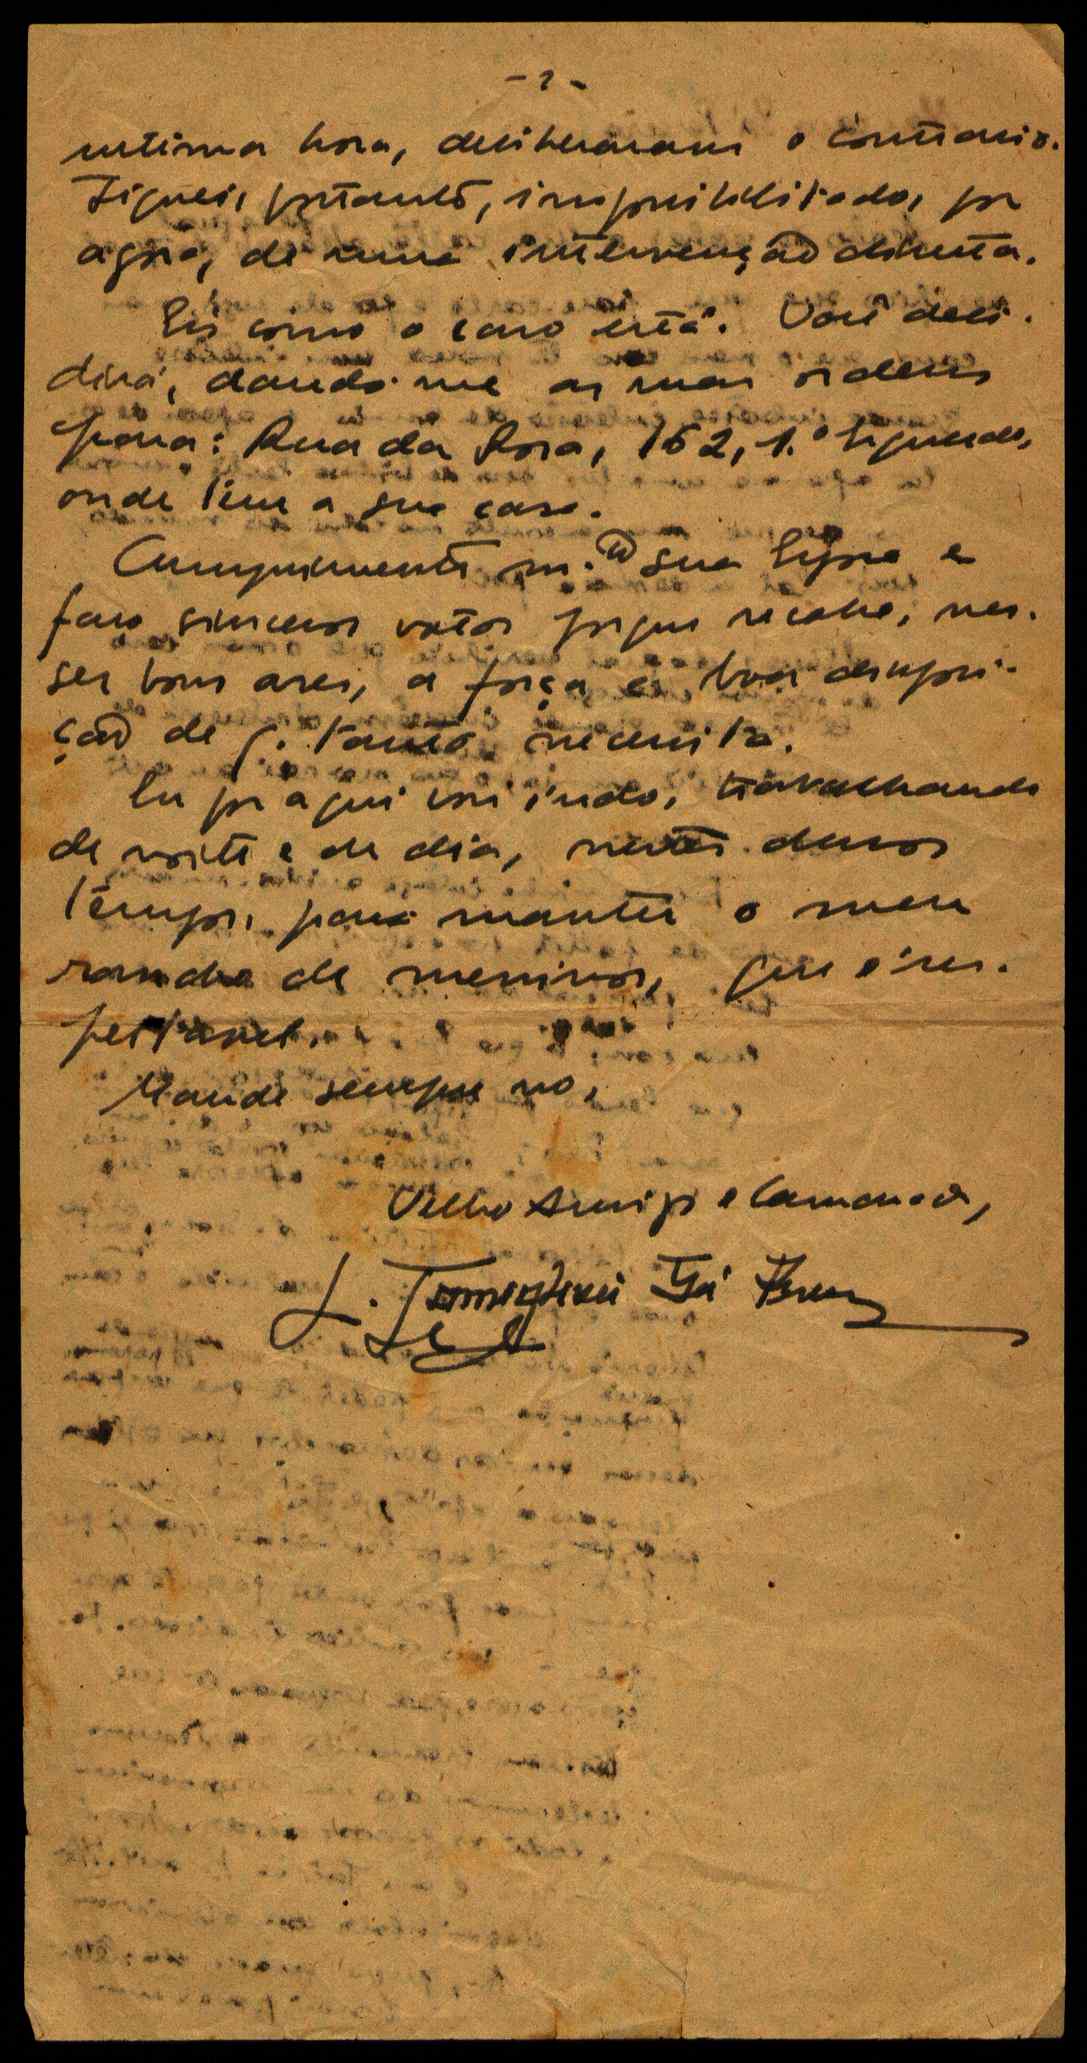 - 2 -
ultima hora, deliberaram o contrario.
Fiquei, portanto, impossibilitado, por
agora, de uma intervenção directa.
Eis como o caso está. Você deci-
dirá, dando-me as suas ordens
para: Rua da Rosa, 162, 1.º Esquerdo,
onde tem a sua casa.
Cumprimente m.to sua Espsa e
faço sinceros votos porque recobre, nes-
ses bons ares, a força e boa disposi-
ção de q. tanto necessita.
Eu por aqui vou indo, trabalhando
de noite e de dia, nestes duros
tempos, para manter o meu
rancho de meninos, que é res-
peitavel.
Mande sempre no,
Velho Amigo e Camarada,
L.